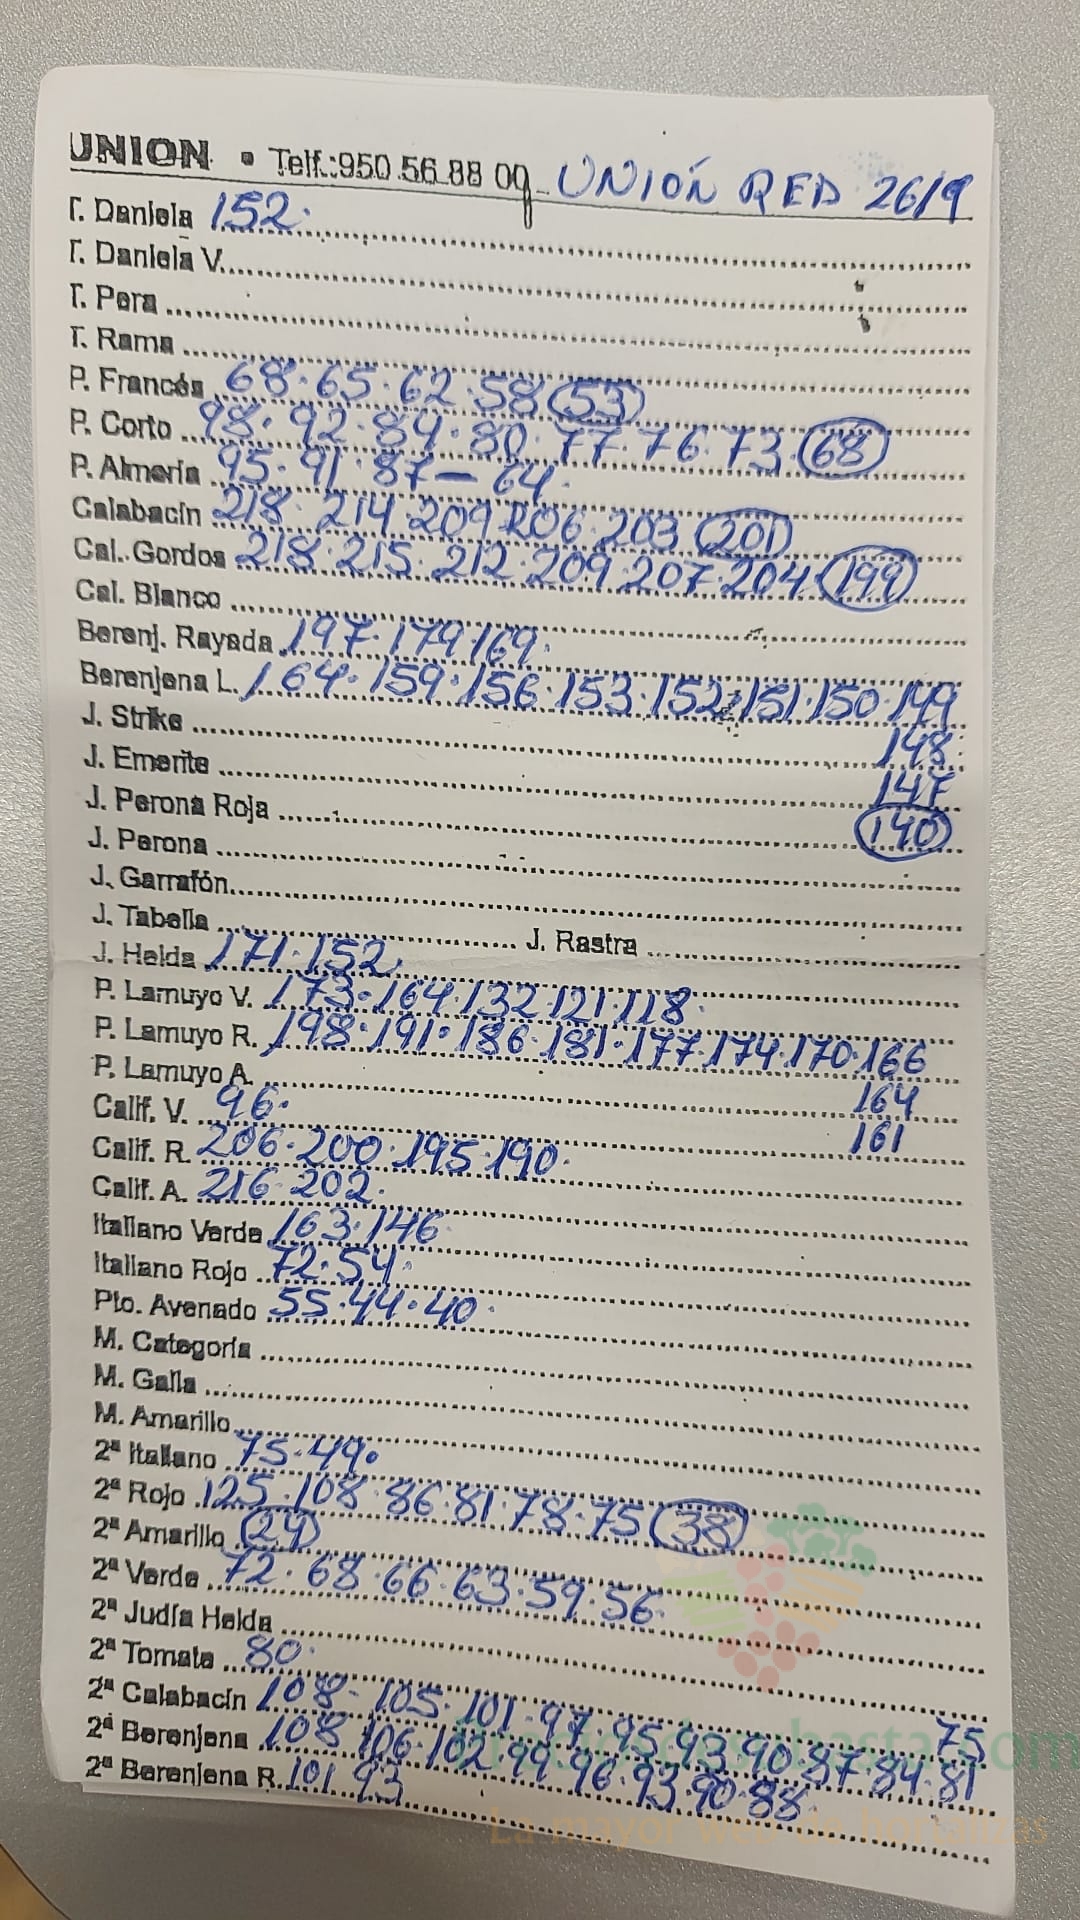 UNION • Telf.:950.56.88 09 UNIÓN RED 26/9
T. Daniela 152.
T. Daniela V.
T. Pera
T. Rama
P. Francés 68.65.62.58 (53)
P. Corto 98.92.89.80.77.76.73.(68)
P. Almería 95.91.87-64.
Calabacín 218.214.209.206.203 (201)
Cal. Gordos 218.215.212.209.207.204.(199)
Cal. Blanco
Berenj. Rayada 197.179.169.
Berenjena L. 164.159.156.153.152.151.150.149
J. Strike 148
J. Emerite 147
J. Perona Roja (140)
J. Perona
J. Garrafón
J. Tabella J. Rastra
J. Helda 171.152
P. Lamuyo V. 173.164.132.121.118.
P. Lamuyo R. 198.191.186.181.177.174.170.166
P. Lamuyo A. 164
Calif. V. 96. 161
Calif. R. 206.200.195.190.
Calif. A. 216 202.
Italiano Verde 163.146
Italiano Rojo 72.54.
Pto. Avenado 55.44.40.
M. Categoría
M. Galia
M. Amarillo
2ª Italiano 75.49.
2ª Rojo 125.108.86.81.78.75 (38)
2ª Amarillo (24)
2ª Verde 72.68.66.63.59.56.
2ª Judía Helda
2ª Tomate 80.
2ª Calabacín 108-105.101.97.95.93.90.87.84.81 75
2ª Berenjena 108 106.102.99.96.93.90.88
2ª Berenjena R. 101.93
La mayor web de hortalizas